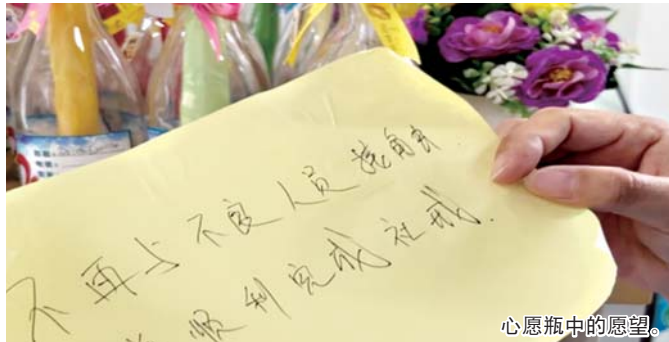 不再与不良人员接触.
顺利完成社戒.
心愿瓶中的愿望。